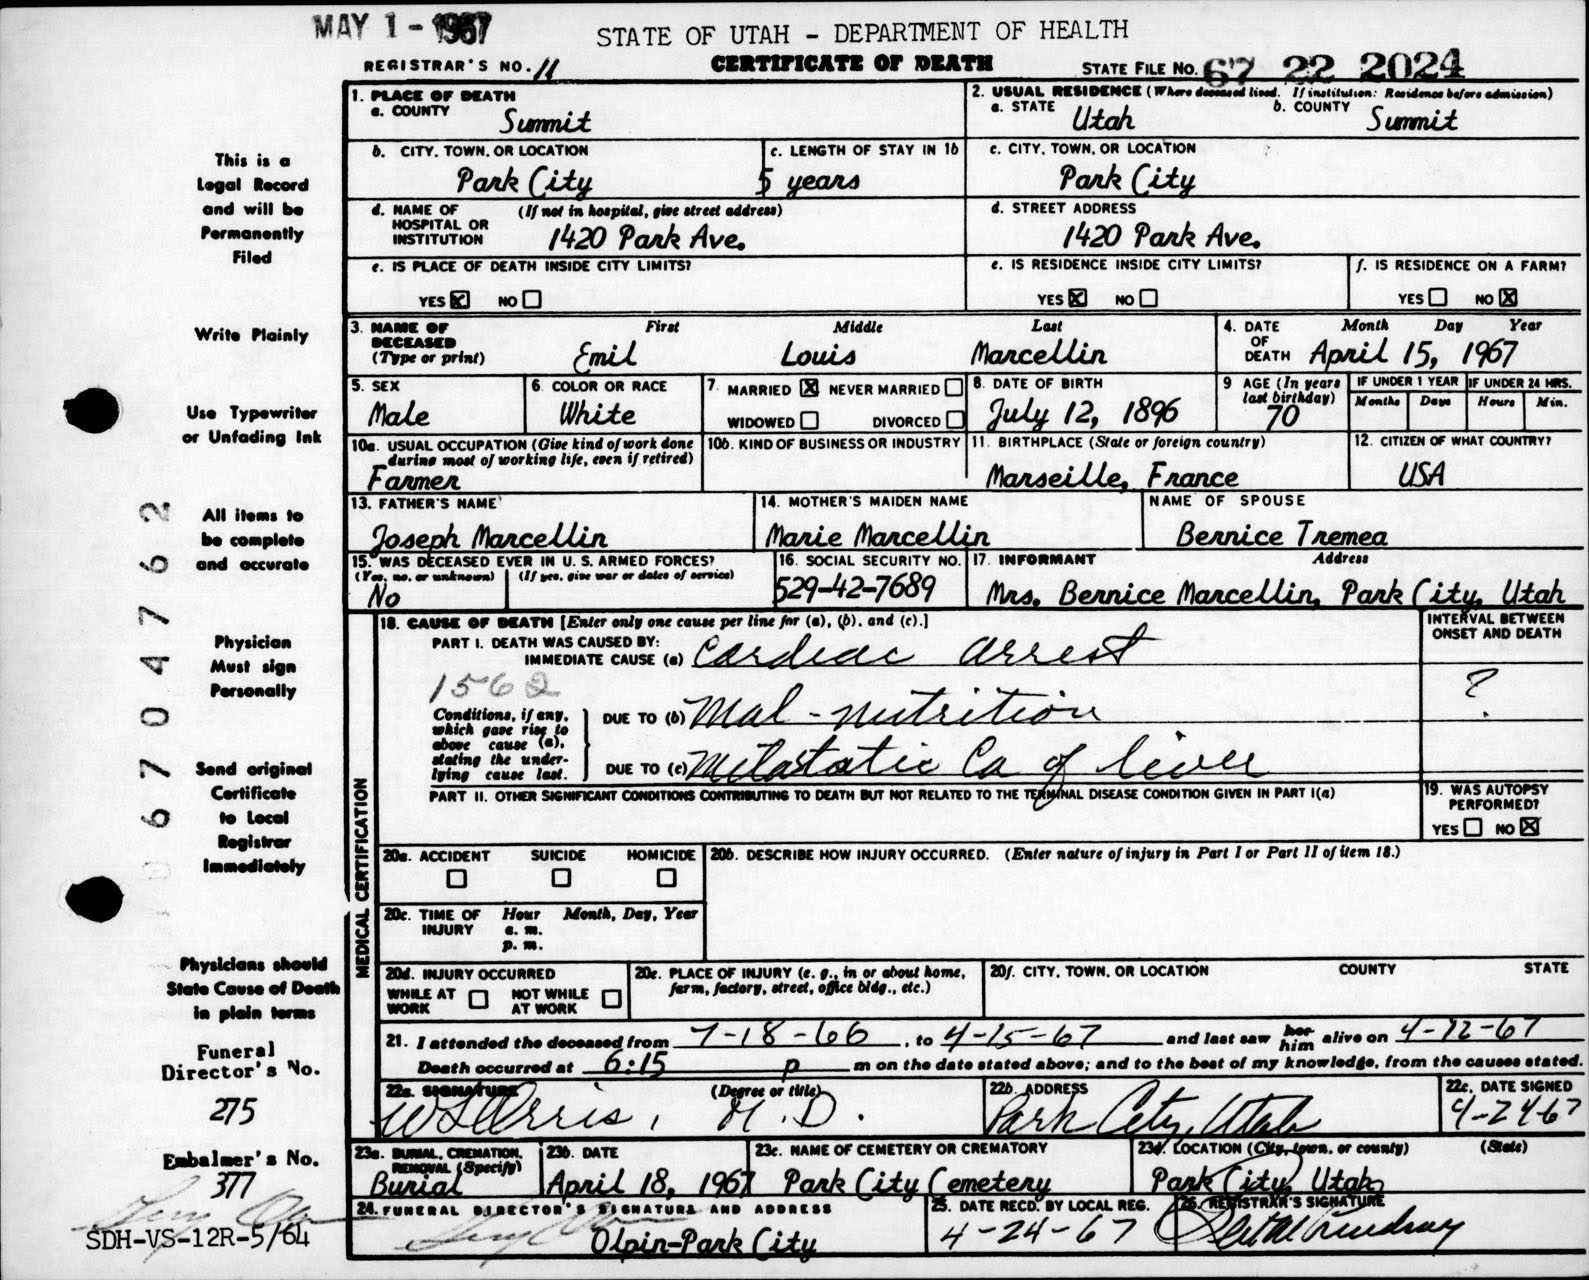 MAY 1 - 1967
STATE OF UTAH - DEPARTMENT OF HEALTH
REGISTRAR'S NO. 11
CERTIFICATE OF DEATH
STATE FILE NO. 67 22 2024
This is a
Legal Record
and will be
Permanently
Filed
Write Plainly
Use Typewriter
or Unfading Ink
All items to
be complete
and accurate
Physician
Must sign
Personally
Send original
Certificate
to Local
Registrar
Immediately
Physicians should
State Cause of Death
in plain terms
Funeral
Director's No.
275
Embalmer's No.
377
SDH-VS-12R-5/64
06704762
1. PLACE OF DEATH
a. COUNTY
Summit
2. USUAL RESIDENCE (Where deceased lived. If institution: Residence before admission)
a. STATE
Utah
b. COUNTY
Summit
b. CITY, TOWN, OR LOCATION
Park City
c. LENGTH OF STAY IN 1b
5 years
c. CITY, TOWN, OR LOCATION
Park City
d. NAME OF HOSPITAL OR INSTITUTION
(If not in hospital, give street address)
1420 Park Ave.
d. STREET ADDRESS
1420 Park Ave.
e. IS PLACE OF DEATH INSIDE CITY LIMITS?
YES ☒ NO ☐
e. IS RESIDENCE INSIDE CITY LIMITS?
YES ☒ NO ☐
f. IS RESIDENCE ON A FARM?
YES ☐ NO ☒
3. NAME OF DECEASED (Type or print)
First Middle Last
Emil Louis Marcellin
4. DATE OF DEATH
Month Day Year
April 15, 1967
5. SEX
Male
6. COLOR OR RACE
White
7. MARRIED ☒ NEVER MARRIED ☐
WIDOWED ☐ DIVORCED ☐
8. DATE OF BIRTH
July 12, 1896
9 AGE (In years last birthday)
70
IF UNDER 1 YEAR
Months Days
IF UNDER 24 HRS.
Hours Min.
10a. USUAL OCCUPATION (Give kind of work done during most of working life, even if retired)
Farmer
10b. KIND OF BUSINESS OR INDUSTRY
11. BIRTHPLACE (State or foreign country)
Marseille, France
12. CITIZEN OF WHAT COUNTRY?
USA
13. FATHER'S NAME
Joseph Marcellin
14. MOTHER'S MAIDEN NAME
Marie Marcellin
NAME OF SPOUSE
Bernice Tremea
15. WAS DECEASED EVER IN U. S. ARMED FORCES?
(Yes, no, or unknown) (If yes, give war or dates of service)
No
16. SOCIAL SECURITY NO.
529-42-7689
17. INFORMANT Address
Mrs. Bernice Marcellin, Park City, Utah
MEDICAL CERTIFICATION
18. CAUSE OF DEATH [Enter only one cause per line for (a), (b), and (c).]
PART I. DEATH WAS CAUSED BY:
IMMEDIATE CAUSE (a) Cardiac arrest
INTERVAL BETWEEN ONSET AND DEATH
?
1562
Conditions, if any, which gave rise to above cause (a), stating the underlying cause last.
DUE TO (b) Mal-nutrition
DUE TO (c) Metastatic Ca of liver
PART II. OTHER SIGNIFICANT CONDITIONS CONTRIBUTING TO DEATH BUT NOT RELATED TO THE TERMINAL DISEASE CONDITION GIVEN IN PART I(a)
19. WAS AUTOPSY PERFORMED?
YES ☐ NO ☒
20a. ACCIDENT SUICIDE HOMICIDE
☐ ☐ ☐
20b. DESCRIBE HOW INJURY OCCURRED. (Enter nature of injury in Part I or Part II of item 18.)
20c. TIME OF INJURY
Hour Month, Day, Year
a. m.
p. m.
20d. INJURY OCCURRED
WHILE AT WORK ☐ NOT WHILE AT WORK ☐
20e. PLACE OF INJURY (e. g., in or about home, farm, factory, street, office bldg., etc.)
20f. CITY, TOWN, OR LOCATION COUNTY STATE
21. I attended the deceased from 7-18-66, to 4-15-67 and last saw her him alive on 4-12-67
Death occurred at 6:15 p m on the date stated above; and to the best of my knowledge, from the causes stated.
22a. SIGNATURE (Degree or title)
M.D.
22b. ADDRESS
Park City, Utah
22c. DATE SIGNED
4-24-67
23a. BURIAL, CREMATION, REMOVAL (Specify)
Burial
23b. DATE
April 18, 1967
23c. NAME OF CEMETERY OR CREMATORY
Park City Cemetery
23d. LOCATION (City, town, or county) (State)
Park City, Utah
24. FUNERAL DIRECTOR'S SIGNATURE AND ADDRESS
Olpin-Park City
25. DATE RECD. BY LOCAL REG.
4-24-67
26. REGISTRAR'S SIGNATURE